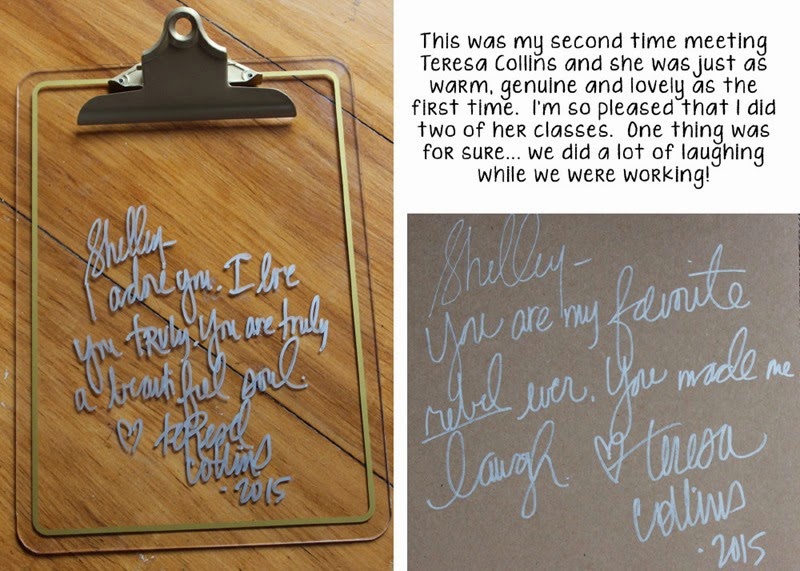 Shelley-
I adore you. I love
you truly. You are truly
a beautiful soul.
♡ teresa
collins
·2015
This was my second time meeting
Teresa Collins and she was just as
warm, genuine and lovely as the
first time.  I'm so pleased that I did
two of her classes.  One thing was
for sure... we did a lot of laughing
while we were working!
Shelley-
You are my favorite
rebel ever. You made me
laugh. ♡ teresa
collins
·2015